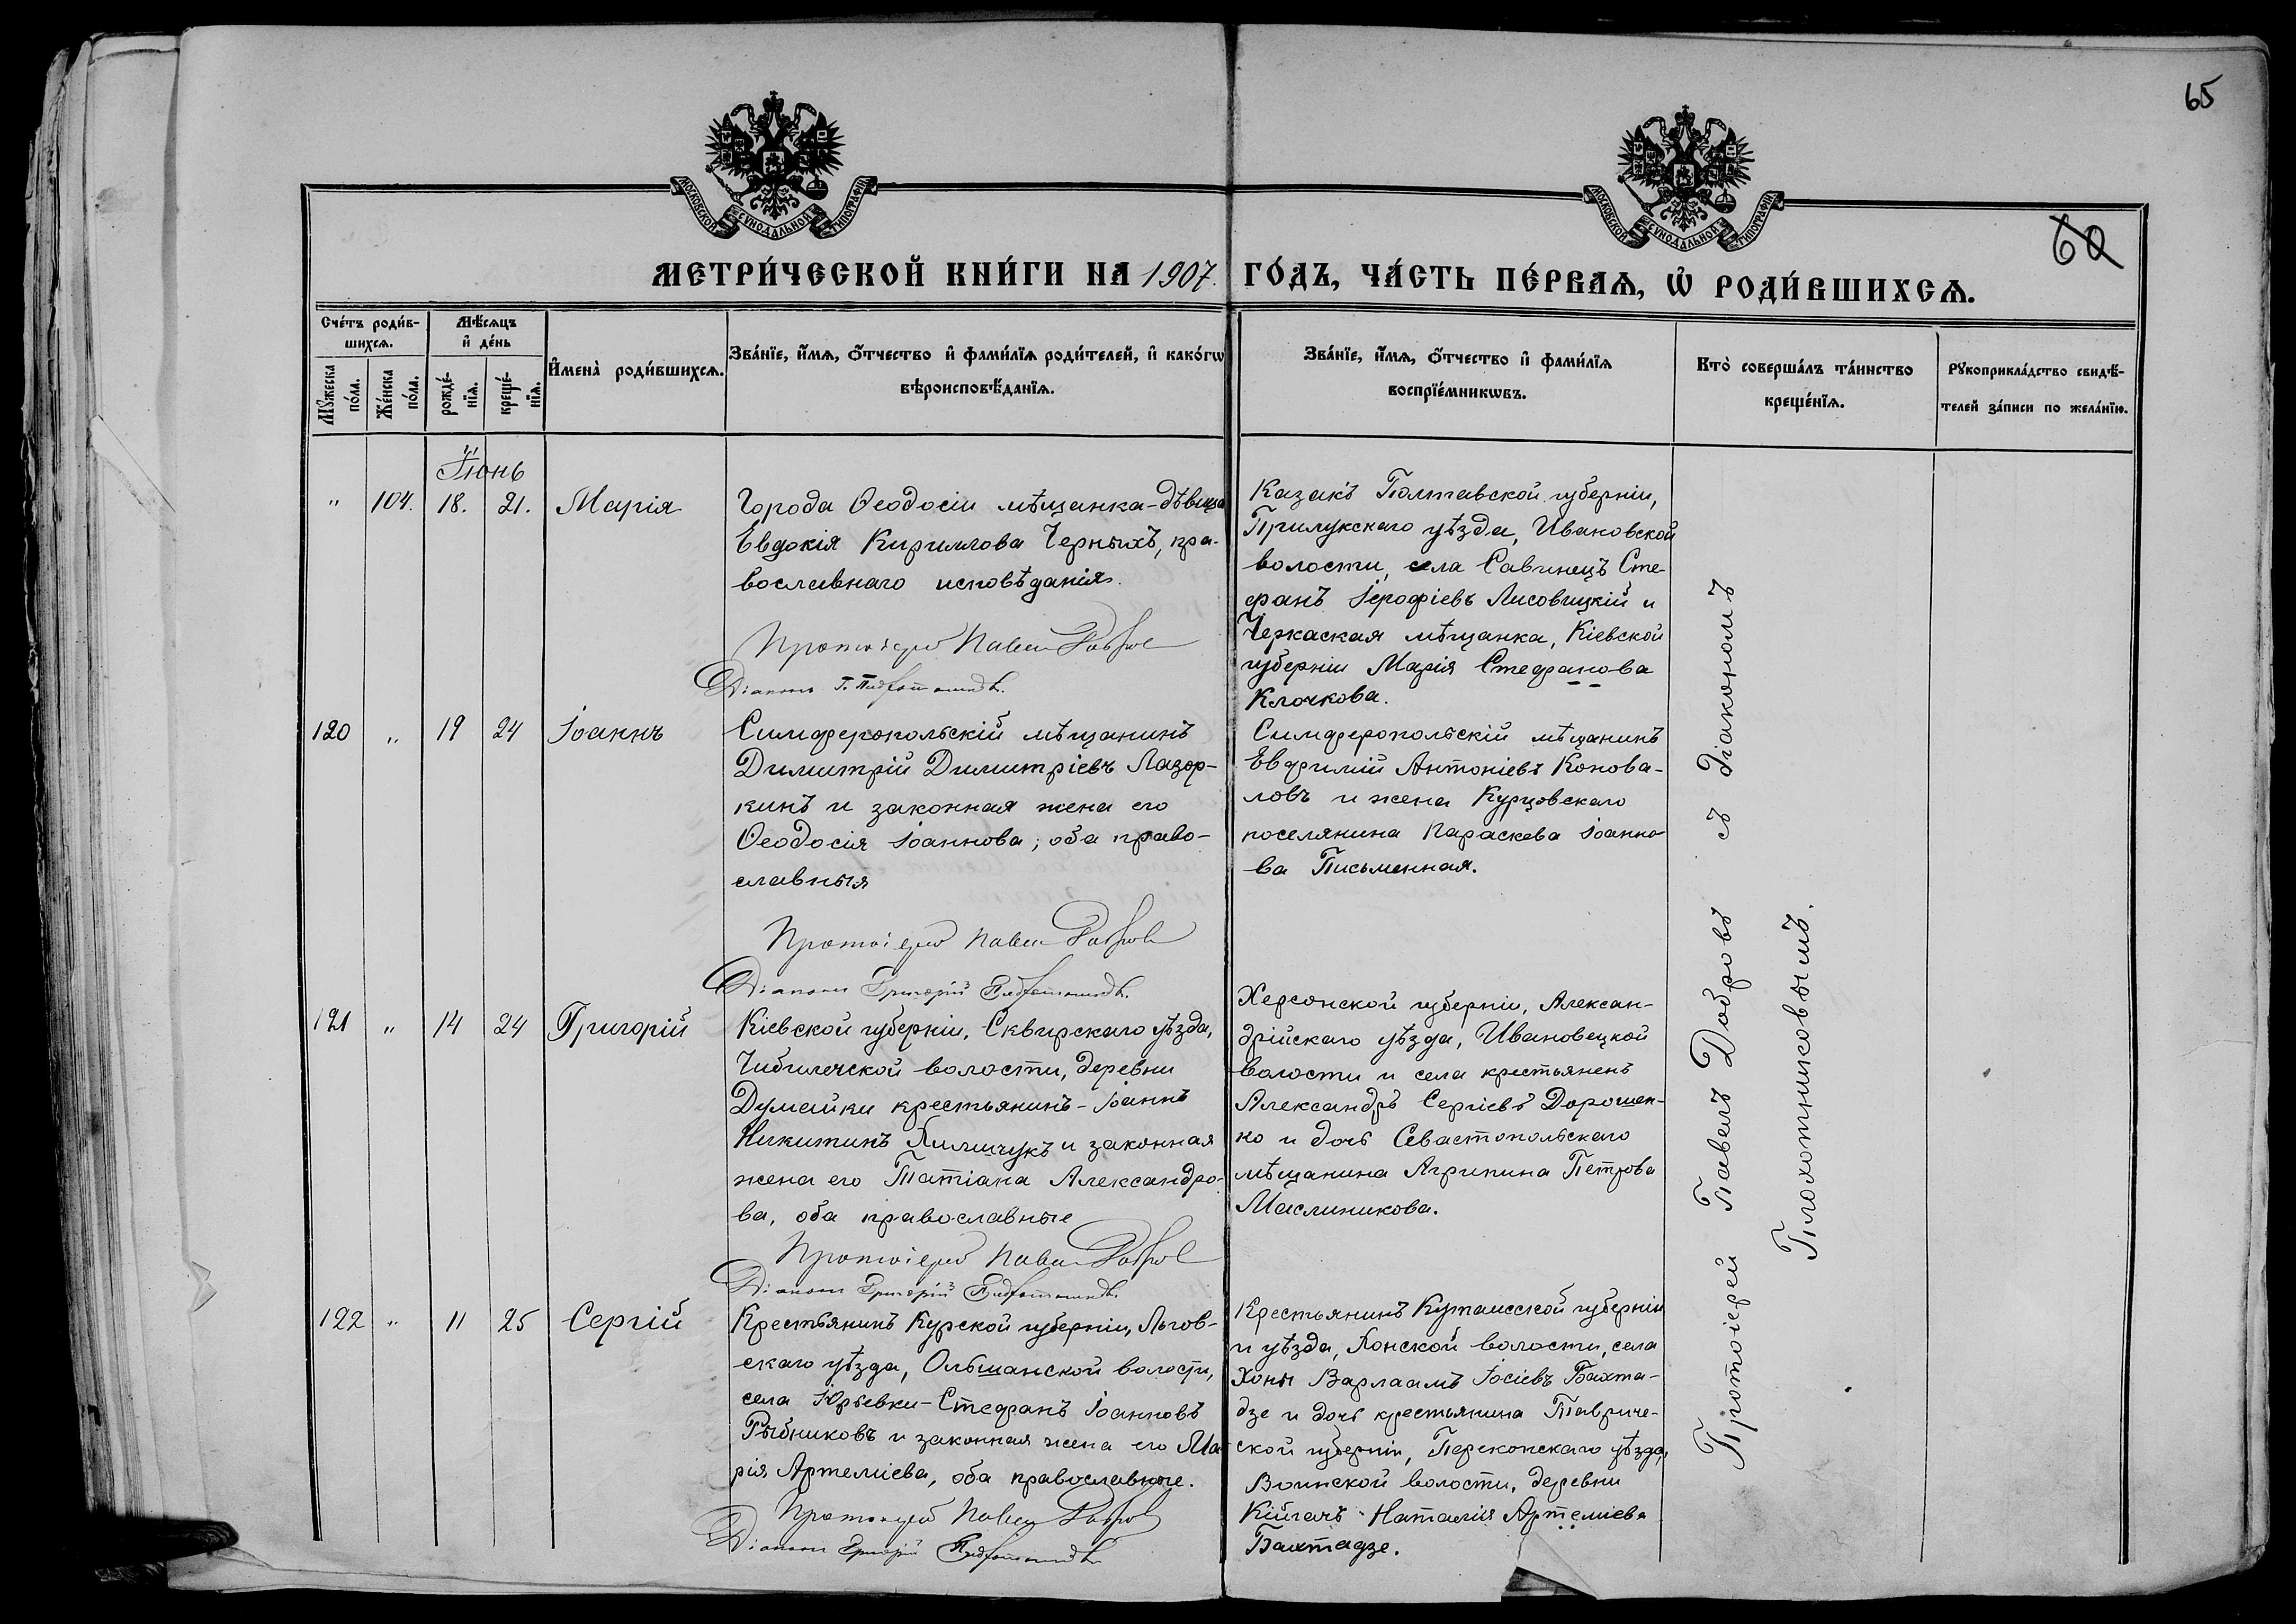 65
МОСКОВСКОЙ СѴНОДАЛЬНОЙ ТИПОГРАФІИ
МОСКОВСКОЙ СѴНОДАЛЬНОЙ ТИПОГРАФІИ
60
МЕТРИ́ЧЕСКОЙ КНИ́ГИ НА 1907. ГО́ДЪ, ЧА́СТЬ ПЕ́РВАѦ, Ѡ҆ РОДИ́ВШИХСѦ.
Сче́тъ роди́в-
шихсѧ.
Мꙋ́жеска по́ла.
Же́нска по́ла.
Мѣ́сѧцъ
и҆ де́нь
рожде́-
нїѧ.
креще́-
нїѧ.
И҆мена̀ роди́вшихсѧ.
Зва́нїе, и҆́мѧ, ѻ҆́тчество и҆ фами́лїѧ роди́телей, и҆ како́гѡ
вѣроисповѣ́данїѧ.
Зва́нїе, и҆́мѧ, ѻ҆́тчество и҆ фами́лїѧ
воспрїе́мникѡвъ.
Кто̀ соверша́лъ та́инство
креще́нїѧ.
Рꙋкоприкла́дство свидѣ́-
телей за́писи по жела́нїю.
Іюнь
" 104. 18. 21. Марія
Города Ѳеодосіи мѣщанка-дѣвица
Евдокія Кириллова Черныхъ, пра-
вославнаго исповѣданія.
Протоіерей Павелъ Добровъ
Діаконъ Г. Плохотниковъ.
Казакъ Полтавской губерніи,
Прилукскаго уѣзда, Ивановской
волости, села Савинецъ Сте-
фанъ Іерофіевъ Лисовицкій и
Черкаская мѣщанка, Кіевской
губерніи Марія Стефанова
Клочкова.
120 " 19 24 Іоаннъ
Симферопольскій мѣщанинъ
Димитрій Димитріевъ Лазор-
кинъ и законная жена его
Ѳеодосія Іоаннова, оба право-
славныя
Протоіерей Павелъ Добровъ
Діаконъ Григорій Плохотниковъ.
Симферопольскій мѣщанинъ
Евфимій Антоніевъ Конова-
ловъ и жена Курцовскаго
поселянина Параскева Іоанно-
ва Письменная.
121 " 14 24 Григорій
Кіевской губерніи, Сквирскаго уѣзда,
волости, деревни
Думайки крестьянинъ - Іоаннъ
Никитинъ и законная
жена его Татіана Александро-
ва, оба православные
Протоіерей Павелъ Добровъ
Діаконъ Григорій Плохотниковъ.
Херсонской губерніи, Алексан-
дрійскаго уѣзда, Ивановецкой
волости и села крестьяненъ
Александръ Сергіевъ Дорошен-
ко и дочь Севастопольскаго
мѣщанина Агрипина Петрова
Маслиникова.
122 " 11 25 Сергій
Крестьянинъ Курской губерніи, Льгов-
скаго уѣзда, Ольшанской волости,
села Юрьевки - Стефанъ Іоанновъ
Рыбниковъ и законная жена его Ма-
рія Артеміева, оба православные.
Протоіерей Павелъ Добровъ
Діаконъ Григорій Плохотниковъ
Крестьянинъ Кутаисской губерніи
и уѣзда, Хонской волости, села
Хоны Варлаамъ Іосіевъ Бахта-
дзе и дочь крестьянина Тавриче-
ской губерніи, Перекопскаго уѣзда,
Воинской волости, деревни
Наталія Артеміева
Бахтадзе.
Протоіерей Павелъ Добровъ съ Діакономъ
Плохотниковымъ.